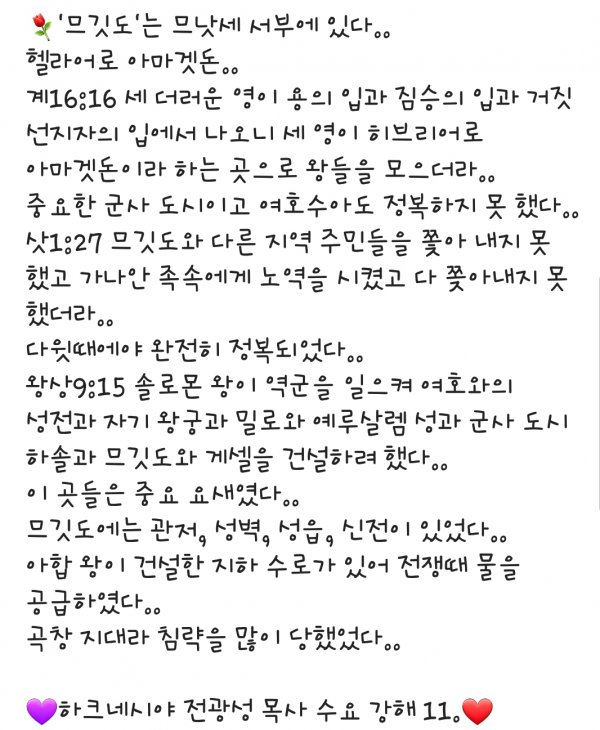 🌹'므깃도'는 므낫세 서부에 있다。。
헬라어로 아마겟돈。。
계16:16 세 더러운 영이 용의 입과 짐승의 입과 거짓
선지자의 입에서 나오니 세 영이 히브리어로
아마겟돈이라 하는 곳으로 왕들을 모으더라。。
중요한 군사 도시이고 여호수아도 정복하지 못 했다。。
삿1:27 므깃도와 다른 지역 주민들을 쫓아 내지 못
했고 가나안 족속에게 노역을 시켰고 다 쫓아내지 못
했더라。。
다윗때에야 완전히 정복되었다。。
왕상9:15 솔로몬 왕이 역군을 일으켜 여호와의
성전과 자기 왕궁과 밀로와 예루살렘 성과 군사 도시
하솔과 므깃도와 게셀을 건설하려 했다。。
이 곳들은 중요 요새였다。。
므깃도에는 관저, 성벽, 성읍, 신전이 있었다。。
아합 왕이 건설한 지하 수로가 있어 전쟁때 물을
공급하였다。。
곡창 지대라 침략을 많이 당했었다。。
💜하크네시야 전광성 목사 수요 강해 11。❤️